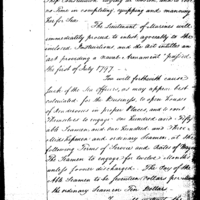 for Sea
The Lieutenant of Marines will
immediately proceed to enlist, agreeably to the
enclosed Instructions and the Act entitled an
act providing a Naval Armament "passed
the first of July 1797.
You will forthwith cause
such of the Sea Officers, as may appear best
calculated for the Business, to open Houses
of Rendezvous in proper Places, and to exert
themselves to engage One Hundred and Fifty
able Seamen, and One Hundred and Three
Midshipmen and ordinary Seamen, at the
following Terms of Service and Rates of Wages
The Seamen to engage for twelve Months
unless sooner discharged. The Pay of the
able Seamen to be fourteen Dollars
the ordinary Seamen Ten Dollars